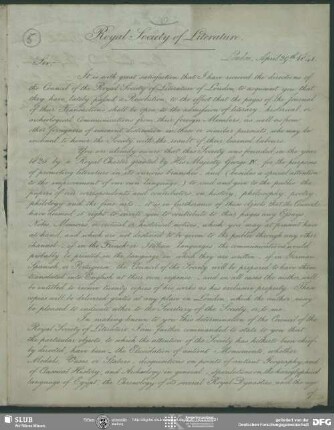 5
Royal Society of Literature
London, April 29th
Sir,
It is with great satisfaction that I have received the directions
of the Council of the Royal Society of Literature of London, to acquaint you that
they have lately passed a Resolution, to the effect that the pages of the journal
of their Transactions shall be open to the admission of literary, historical or
archaeological communications from their foreign Members, as well as from
that foreigners of eminent distinction in these or similar pursuits, who may be
induced to honour the Society with the result of their learned labours.
You are already aware that this Society was founded in the year
1823 by a Royal Charter granted by His Majesty George IV. for the purpose
of promoting literature in its various branches, and
to the improvement of our own language;
philology and the fine arts; it is in furtherance of these objects that the Council
have deemed it right to invite you to contribute to their pages any Essays
Notes, Memoirs or critical or historical notices, which you may at present have
at hand, and which are not intended to be given to the public through any other
channel; if in the French or Italian language, the communications would
probably be printed in the language in which they are written; if in German
Spanish, or Portuguese the Council of the Society will be prepared to have them
translated into English at their own expense; and in all cases the author will
be entitled to receive twenty copies of his work as his exclusive property. These
copies will be delivered gratis at any place in London, which the author may
be pleased to indicate either to the Secretary of the Society, or to me.
In conveying to you this determination of the Council of the
Royal Society of Literature I am further commanded to state to you that
the particular objects, to which the attention of the Society has hitherto been chiefly
directed have been, the Elucidation of ancient Monuments, whether
Medals, Vases or Statues; disquisitions on points of ancient Geography and
of Classical History, and Archaeology in general; speculations in the hieroglyphical
language of Egypt, the Chronology of its several Royal Dynasties and the age
SLUB
Wir führen Wissen.
DFG